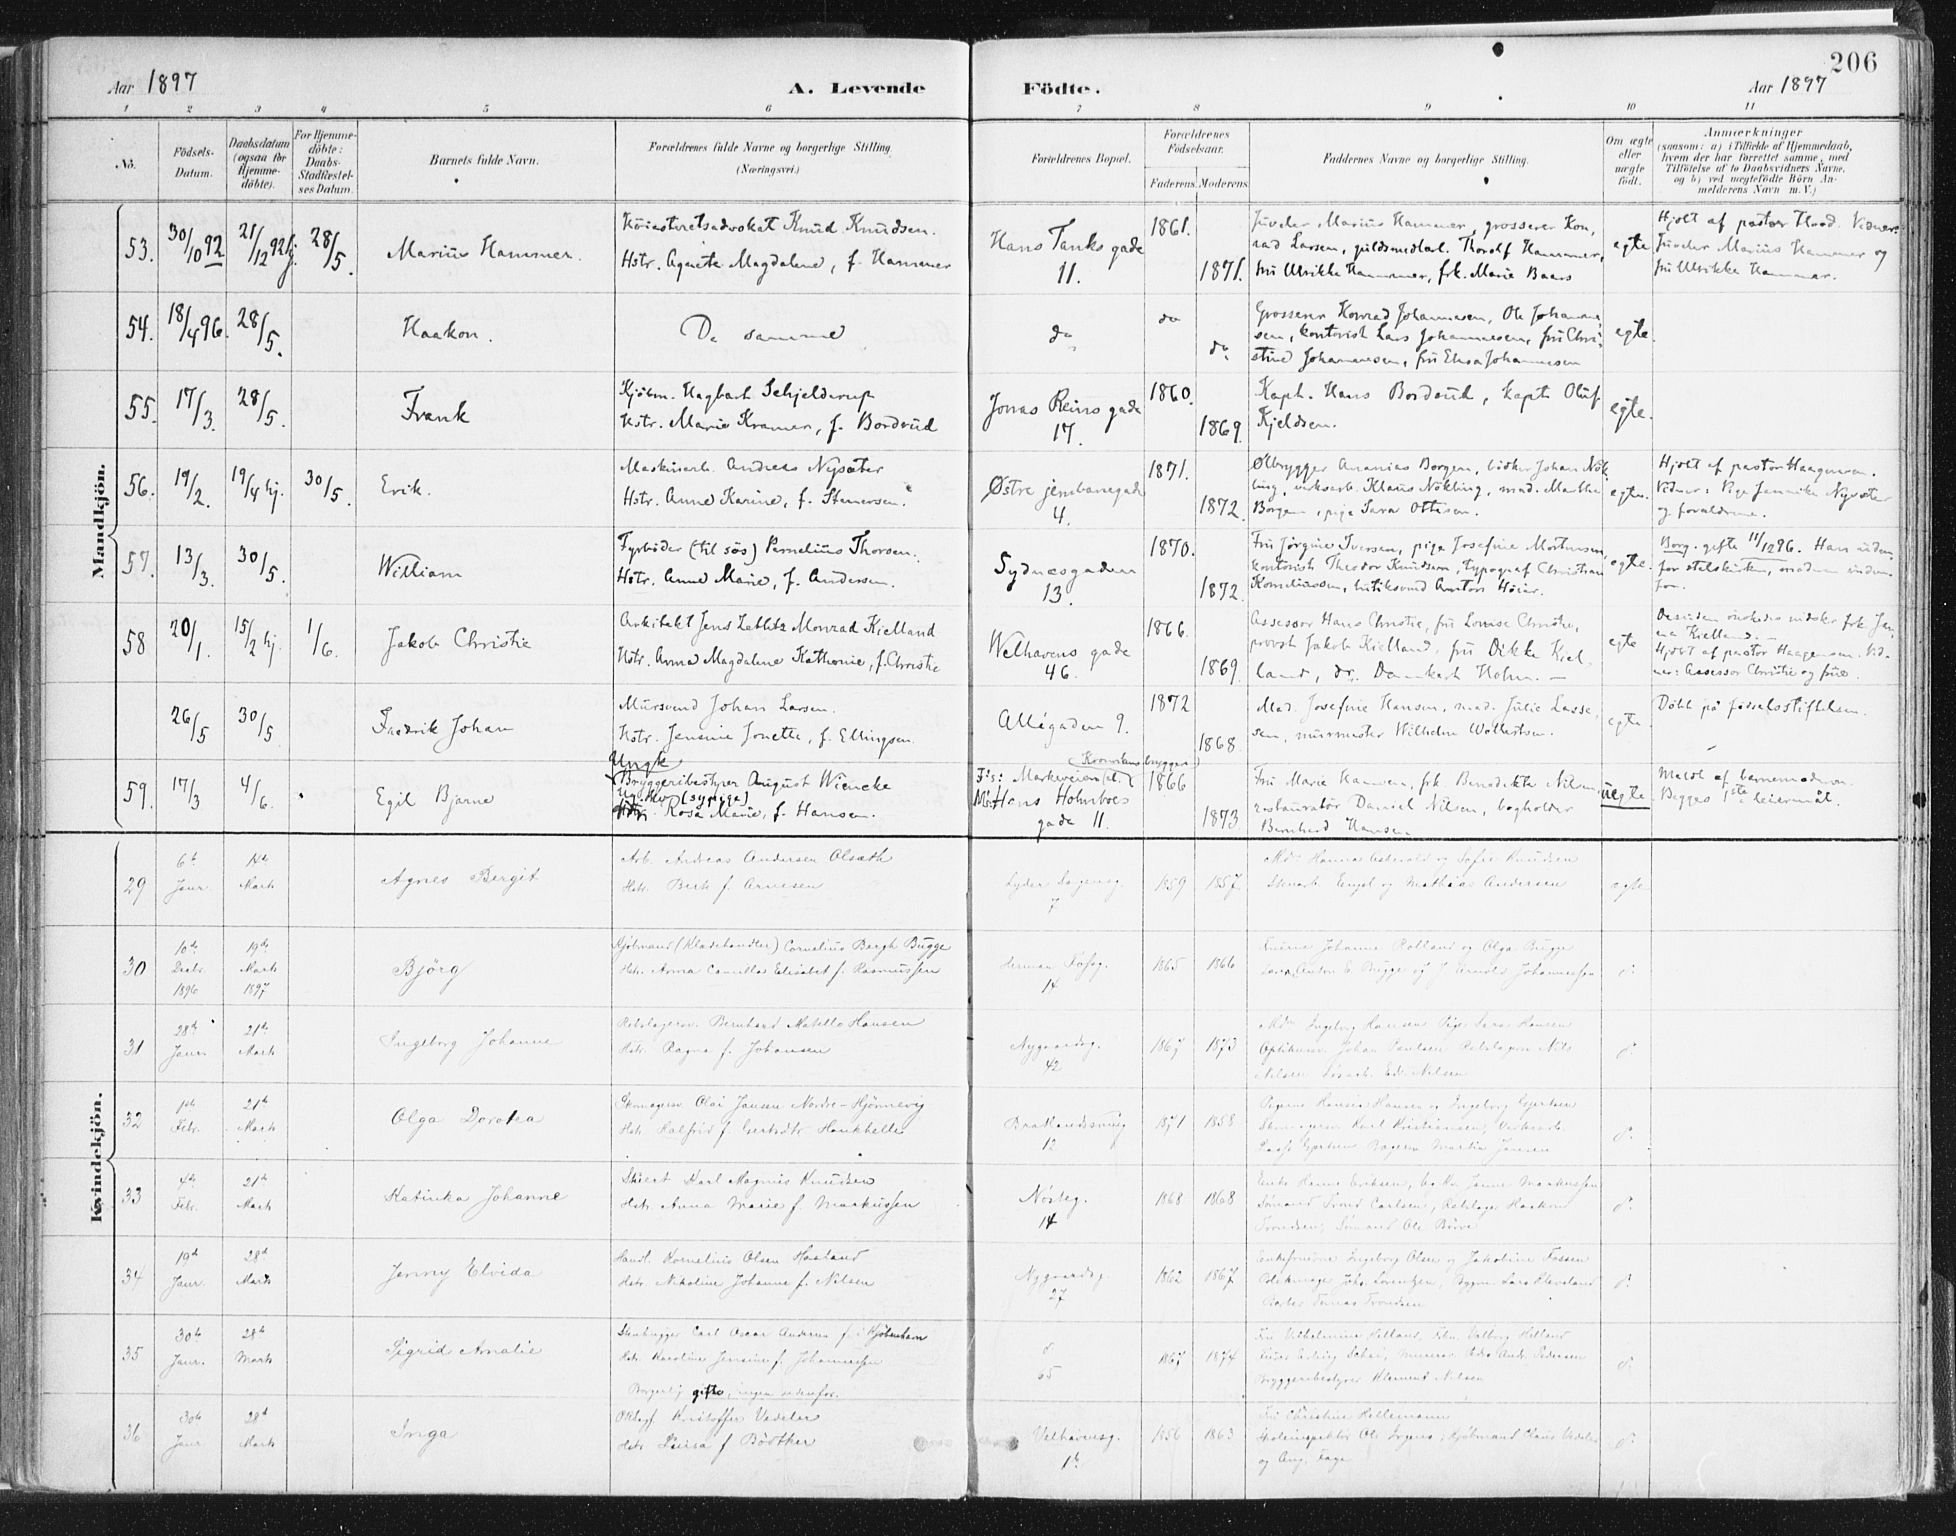 206
Aar 1897 A. Levende Födte. Aar 1897
1 2 3 4 5 6 7 8 9 10 11
No. Födsels-Datum. Daabsdatum (ogsaa for Hjemme-döbte). For Hjemme-döbte: Daabs-Stadfæstel-ses Datum. Barnets fulde Navn. Forældrenes fulde Navne og borgerlige Stilling. (Næringsvei.) Forældrenes Bopæl. Forældrenes Födselsaar. Faderens. Moderens. Faddernes Navne og borgerlige Stilling. Om ægte eller uægte födt. Anmærkninger
(saasom: a) i Tilfælde af Hjemmedaab, hvem der har forrettet samme, med Tilföielse af to Daabsvidners Navne, og b) ved uægtefödte Börn Anmelderens Navn m. V.)
Mandkjön.
53. 30/10 92 21/12 92 hj. 28/5. Marius Hammer.
Höiesteretsadvokat Knud Knudsen.
Hstr. Agnete Magdalene, f. Hammer
Hans Tanks gade
11.
1861. 1871.
Juveler Marius Hammer, grosserer Kon,
rad Larsen, guldsmedlærl. Thorolf Hammer,
fru Ulrikke Hammer, frk. Marie Baars
egte
Hjdbt af pastor Throd. Vidner:
Juveler Marius Hammer og
fru Ulrikke Hammer.
54. 18/4 96. 28/5. Haakon.
De samme
do do do
Grosserer Konrad Johannesen, Ole Johanne,
sen, kontorist Lars Johannesen, fru Chri,
stine Johannesen, fru Elisa Johannesen
egte.
55. 17/3. 28/5. Frank
Kjöbm. Hagbart Schjelderup
Hstr. Marie Kramer, f. Bordvid
Jonas Reins gade
17.
1860. 1869.
Kapt. Hans Bordvid, kapt. Oluf
Kjeldsen.
egte.
56. 19/2. 19/4 hj. 30/5. Erik.
Maskinarb. Andreas Nysæter
Hstr. Anne Karine, f. Stenersen.
Østre jernbanegade
4.
1871. 1872.
Ølbrygger Ananias Borgen, Johan Nök
ling, Klaus Nökling, mad. Marthe
Borgen, pige Sara Ottesen.
egte.
Hjdbt af pastor Haagensen.
Vidner: Pige Jennike Nysæter
og forældrene.
57. 13/3. 30/5. William
Fyrböder (til sös) Pernelius Thorsen.
Hstr. Anne Marie, f. Andersen.
Sydnæsgaden
13.
1870. 1872.
Fru Jörgine Iversen, pige Josefine Mortensen,
kontorist Theodor Knudsen, typograf Christian
Korneliussen, butiksvend Anton Höier.
egte.
Borg. gifte 11/12 96. Han uden,
for statskirken, moderen inden,
for.
58 20/1. 15/2 hj. 1/6. Jakob Christie
Arkitekt Jens Zetlitz Monrad Kielland
Hstr. Anna Magdalene Kathonie, f. Christie
Welhavens gade
46.
1866. 1869.
Assessor Hans Christie, fru Louise Christie,
provst Jakob Kielland, fru Dikke Kiel,
land, dr. Dankert Holm. —
egte
Desuden önskedes indsker frk. Jen,
na Kielland. —
Hjdbt af pastor Haagensen. Vid,
ner: Assessor Christie og frue.
26/5 30/5. Fredrik Johan
Mursvend Johan Larsen.
Hstr. Jensine Jonette, f. Ellingsen.
Allégaden 9.
1872 1868.
Mad. Josefine Hansen, mad. Julie Lasse,
sen, murmester Wilhelm Woltertsen.
egte.
Döbt på fødselsstiftelsen.
59. 17/3 4/6. Egil Bjarne
Ungk
Bryggeribestyrer August Wiencke
Ug. kv. (sypige)
Rosa Marie, f. Hansen.
F's: Markeveien
M's: Hans Holmboes
gade 11.
1866 1873
Fru Marie Hansen, frk. Benedikte Nilsen,
restauratör Daniel Nilsen, bogholder
Bernhard Hansen
uegte
Meldt af barnemoderen.
Begges 1ste leiermål.
Kvindekjön.
29 6te Janr. 14de Marts Agnes Bergit
Arb. Andreas Andersen Olsæth
Hstr. Berte f. Arnesen
Lyder Sagensg.
7
1859 1857.
Mdm Hanna Aadevold og Sofie Knudsen
Stenarb. Engel og Mathias Andersen
egte
30 10de Decbr. 1896 19de Marts 1897 Björg
Kjöbmand (Klædehandler) Cornelius Bergh Bugge
Hstr. Anna Camilla Elisabet f. Rasmussen
Herman Fossg.
14
1865 1866
Fruerne Johanna Rolland og Olga Bugge
Anton E. Bugge og J. Johannessen
d.
31 28de Janr. 21de Marts Ingeborg Johanne
Rebslagersv. Bernhard Hansen
Hstr. Ragna f. Johansen
Nygaardsg.
42
1867 1873
Mdm Ingeborg Hansen Pige Sara Hansen
Johan Paulsen Rebslagersv. Nils
Nilsen Ed. Nilsen
d.
32 1ste Febr. 21de Marts Olga Dorotea
Skomagersv. Olai Jansen Nordre-Hjönnevig
Hstr. Halfrid f. Gertsdtr. Haukhelle
Bratlandssmug
12
1871 1858
Pigerne Hansen og Ingeborg Gjertsen
Skomagersv. Karl Kristiansen,
Gjertsen Martin Jansen
d.
33 4de Febr. 21de Marts Katinka Johanne
Karl Magnus Knudsen
Hstr. Anna Marie f. Markussen
Nösteg.
14
1868 1868
Enke Hanne Eriksen, Janne Markussen
Sömand Trond Carlsen, Rebslager Haakon
Trondsen, Sömand Ole
d.
34 19de Janr. 28de Marts Jenny Elvida
Handl. Kornelius Olsen Hastand
Hstr. Nikoline Johanne f. Nilsen
Nygaardsg.
27
1862 1867.
Enkefruerne Ingeborg Olsen og Jakobine Fossen
Johs. Lorentzen, Lars Kleveland
Tomas Trondsen
d.
35 30te Janr. 28de Marts Sigrid Amalie
Stenhugger Carl Oscar Andersen f. i Kjöbenhavn
Hstr. Karoline Jensine f. Johannessen
Borgerlig gifte, ingen udenfor.
65
1867 1874
Fru Vilhelmine Helland, Frkn. Valborg Helland
Andr. Pedersen
Bryggeribestyrer Klement Nilsen
d.
36 30te Janr 28de Marts Inga
Kristoffer Vedeler
Hstr. Luisa f. Bödtker
Velhavensg.
1b
1856 1863
Fru Christine Hellemann
Skoleinspektör Ole Irgens, Kjöbmand Claus Vedeler
og Aug. Fage
d.